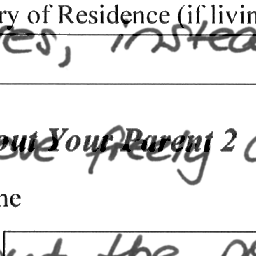 ry of Residence (if livin
es, instea
out Your Parent 2
eve freely
ne
the